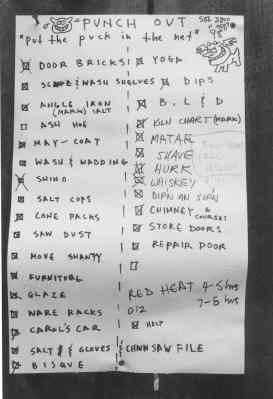 PUNCH OUT
"put the puck in the net"
DOOR BRICKS!
& WASH SHELVES
ANGLE IRON
(MARK) SALT
ASH HOE
MAY-COAT
WASH & WADDING
SHINO
SALT CUPS
CONE PACKS
SAW DUST
MOVE SHANTY
FURNITURE
GLAZE
WARE RACKS
CAROL'S CAR
SALT & GLOVES
BISQUE
YOGA
DIPS
B. L & D
KILN CHART (MARK)
MATAR
SHAVE
HURK
WHISKEY
CHIMNEY &
COURSES
STOKE DOORS
REPAIR DOOR
RED HEAT 4-5 hrs
012 7-8 hrs
HELP
CHAIN SAW FILE